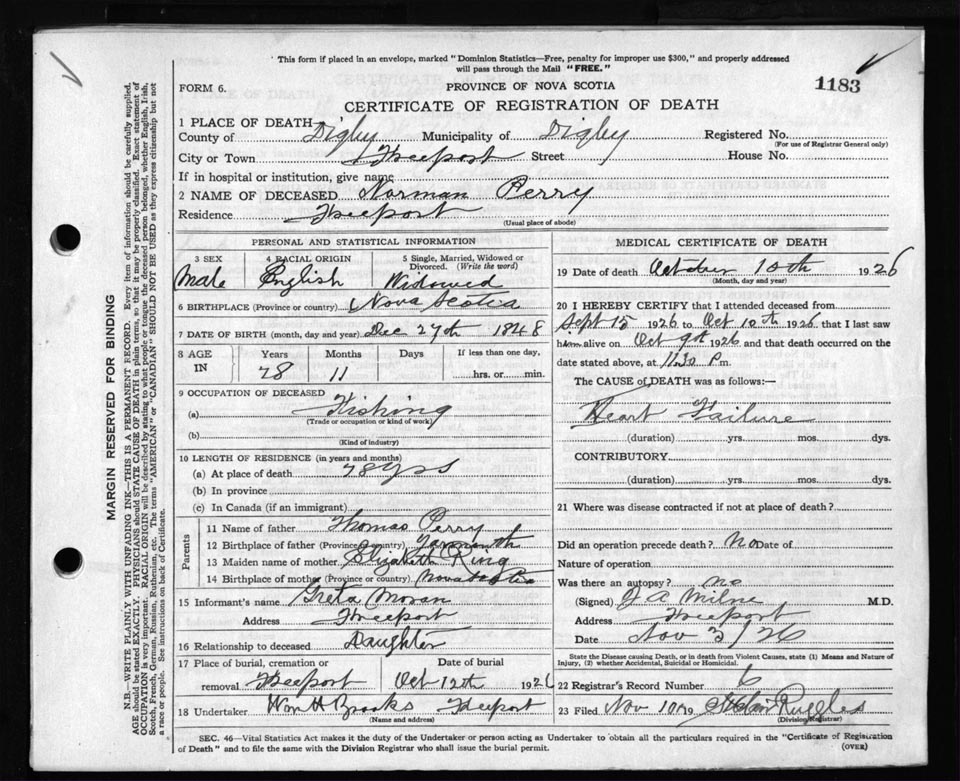 This form if placed in an envelope, marked "Dominion Statistics—Free, penalty for improper use $300," and properly addressed
will pass through the Mail "FREE."
1183
FORM 6.
PROVINCE OF NOVA SCOTIA
CERTIFICATE OF REGISTRATION OF DEATH
1 PLACE OF DEATH
County of Digby Municipality of Digby Registered No.
(For use of Registrar General only)
City or Town Freeport Street House No.
If in hospital or institution, give name
2 NAME OF DECEASED Norman Perry
Residence Freeport
(Usual place of abode)
PERSONAL AND STATISTICAL INFORMATION
3 SEX 4 RACIAL ORIGIN 5 Single, Married, Widowed or Divorced. (Write the word)
Male English Widowed
6 BIRTHPLACE (Province or country) Nova Scotia
7 DATE OF BIRTH (month, day and year) Dec 27th 1848
8 AGE IN Years Months Days If less than one day,
78 11 hrs. or min.
9 OCCUPATION OF DECEASED
(a) Fishing
(Trade or occupation or kind of work)
(b)
(Kind of industry)
10 LENGTH OF RESIDENCE (in years and months)
(a) At place of death 78 yrs
(b) In province
(c) In Canada (if an immigrant)
Parents
11 Name of father Thomas Perry
12 Birthplace of father (Province or country) Yarmouth
13 Maiden name of mother Elizabeth Ring
14 Birthplace of mother (Province or country) Nova Scotia
15 Informant's name Greta Moran
Address Freeport
16 Relationship to deceased Daughter
17 Place of burial, cremation or Date of burial
removal Freeport Oct 12th 1926
18 Undertaker Brooks Freeport
(Name and address)
MEDICAL CERTIFICATE OF DEATH
19 Date of death October 10th 1926
(Month, day and year)
20 I HEREBY CERTIFY that I attended deceased from
Sept 15 1926 to Oct 10th 1926 that I last saw
him alive on Oct 9th 1926 and that death occurred on the
date stated above, at 11.30 P.m.
The CAUSE of DEATH was as follows:—
Heart Failure
(duration) yrs. mos. dys.
CONTRIBUTORY.
(duration) yrs. mos. dys.
21 Where was disease contracted if not at place of death?
Did an operation precede death? No Date of
Nature of operation
Was there an autopsy? no
(Signed) J A Milne M.D.
Address Freeport
Date Nov 3/26
State the Disease causing Death, or in death from Violent Causes, state (1) Means and Nature of
Injury, (2) whether Accidental, Suicidal or Homicidal.
22 Registrar's Record Number 6
23 Filed Nov 10 19 Ruggles
(Division Registrar)
SEC. 46—Vital Statistics Act makes it the duty of the Undertaker or person acting as Undertaker to obtain all the particulars required in the "Certificate of Registration
of Death" and to file the same with the Division Registrar who shall issue the burial permit.
(OVER)
MARGIN RESERVED FOR BINDING
N.B.—WRITE PLAINLY WITH UNFADING INK—THIS IS A PERMANENT RECORD. Every item of information should be carefully supplied.
AGE should be stated EXACTLY. PHYSICIANS should STATE CAUSE OF DEATH in plain terms, so that it may be properly classified. Exact statement of
OCCUPATION is very important. RACIAL ORIGIN will be described by stating to what people or tongue the deceased person belonged, whether English, Irish,
Scotch, French, German, Russian, Ruthenian, etc. The terms "AMERICAN" or "CANADIAN" SHOULD NOT BE USED as they express citizenship but not
a race or people. See instructions on back of Certificate.